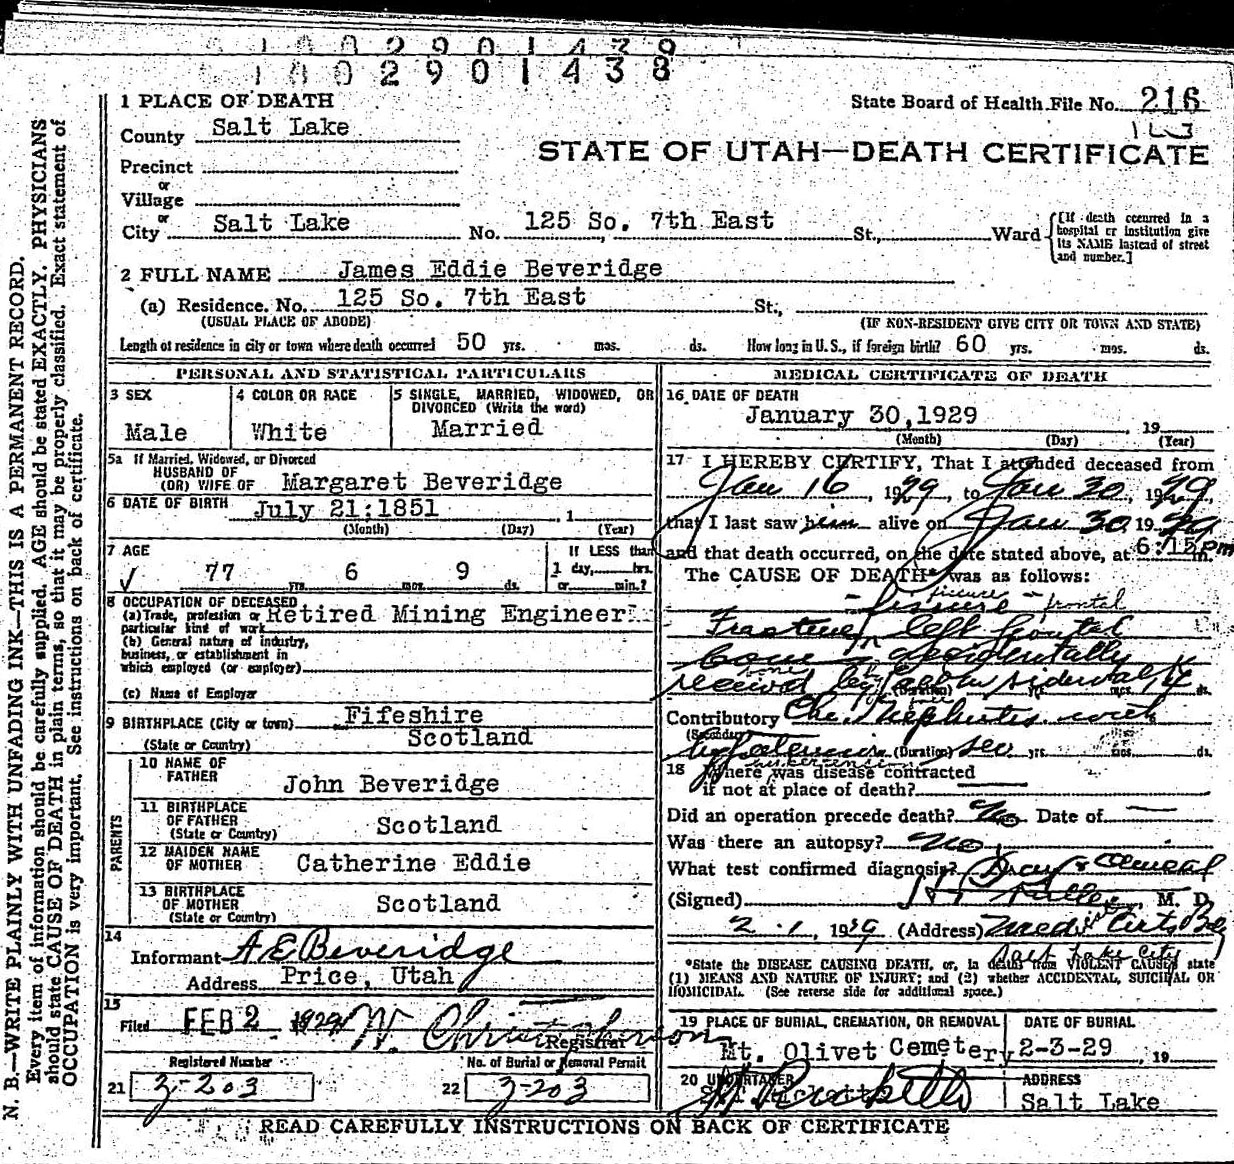 1 0 0 2 9 0 1 4 3 9
1 8 0 2 9 0 1 4 3 8
1 PLACE OF DEATH
State Board of Health File No. 216
County Salt Lake
STATE OF UTAH—DEATH CERTIFICATE
Precinct
or
Village
or
City Salt Lake No. 125 So. 7th East St., Ward
[If death occurred in a hospital or institution give its NAME instead of street and number.]
2 FULL NAME James Eddie Beveridge
(a) Residence. No. 125 So. 7th East St.,
(USUAL PLACE OF ABODE) (IF NON-RESIDENT GIVE CITY OR TOWN AND STATE)
Length of residence in city or town where death occurred 50 yrs. mos. ds. How long in U.S., if foreign birth? 60 yrs. mos. ds.
PERSONAL AND STATISTICAL PARTICULARS
3 SEX
Male
4 COLOR OR RACE
White
5 SINGLE, MARRIED, WIDOWED, OR
DIVORCED (Write the word)
Married
5a If Married, Widowed, or Divorced
HUSBAND OF
(OR) WIFE OF Margaret Beveridge
6 DATE OF BIRTH July 21;1851 , 1
(Month) (Day) (Year)
7 AGE
77 yrs. 6 mos. 9 ds.
If LESS than
1 day, hrs.
or min.?
8 OCCUPATION OF DECEASED
(a) Trade, profession or Retired Mining Engineer
particular kind of work
(b) General nature of industry,
business, or establishment in
which employed (or employer)
(c) Name of Employer
9 BIRTHPLACE (City or town) Fifeshire
(State or Country) Scotland
PARENTS
10 NAME OF
FATHER
John Beveridge
11 BIRTHPLACE
OF FATHER
(State or Country) Scotland
12 MAIDEN NAME
OF MOTHER Catherine Eddie
13 BIRTHPLACE
OF MOTHER
(State or Country) Scotland
14
Informant A E Beveridge
Address Price, Utah
15
Filed FEB 2 1929 W. Christopherson
Registrar
Registered Number
21 3-203
No. of Burial or Removal Permit
22 3-203
MEDICAL CERTIFICATE OF DEATH
16 DATE OF DEATH
January 30,1929 , 19
(Month) (Day) (Year)
17 I HEREBY CERTIFY, That I attended deceased from
Jan 16 , 1929, to Jan 30, 1929,
that I last saw him alive on Jan 30, 1929
and that death occurred, on the date stated above, at 6:15 pm m.
The CAUSE OF DEATH* was as follows:
fissure frontal
fissure
Fracture left frontal
bone accidentally
received by fall on sidewalk
(Duration) yrs. mos. ds.
Contributory Chr. Nephritis with
(Secondary)
hypertension (Duration) sev yrs. mos. ds.
hypertension
18 Where was disease contracted
if not at place of death?
Did an operation precede death? No Date of
Was there an autopsy? No
What test confirmed diagnosis? Xray & Clinical
(Signed) M. D.
2.1, 1929 (Address) Medical Arts Bldg
Salt Lake City
*State the DISEASE CAUSING DEATH, or, in deaths from VIOLENT CAUSES state
(1) MEANS AND NATURE OF INJURY; and (2) whether ACCIDENTAL, SUICIDAL OR
HOMICIDAL. (See reverse side for additional space.)
19 PLACE OF BURIAL, CREMATION, OR REMOVAL
Mt. Olivet Cemetery
DATE OF BURIAL
2-3-29 , 19
20 UNDERTAKER
ADDRESS
Salt Lake
READ CAREFULLY INSTRUCTIONS ON BACK OF CERTIFICATE
N. B.—WRITE PLAINLY WITH UNFADING INK—THIS IS A PERMANENT RECORD.
Every item of information should be carefully supplied. AGE should be stated EXACTLY. PHYSICIANS
should state CAUSE OF DEATH in plain terms, so that it may be properly classified. Exact statement of
OCCUPATION is very important. See instructions on back of certificate.